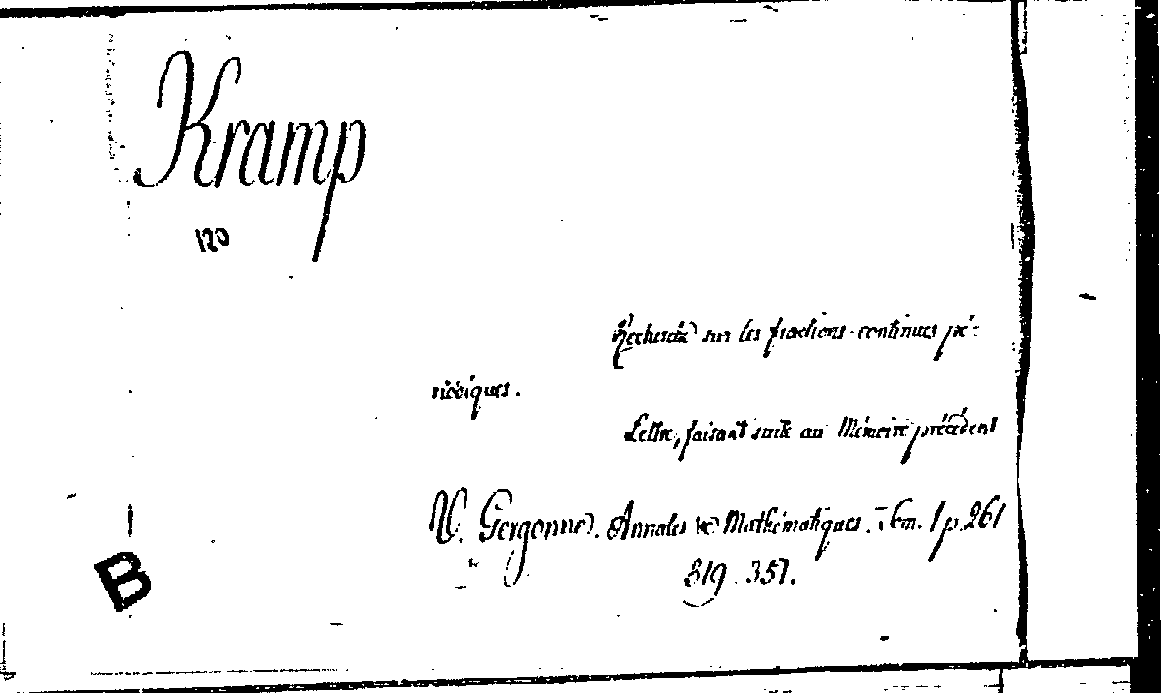 Kramp
120
Recherche sur les fractions continues pé-
riodiques.
Lettre, faisant suite au Mémoire précédent
V. Gergonne. Annales de Mathématiques. Tom. 1 p. 261
319. 357.
B